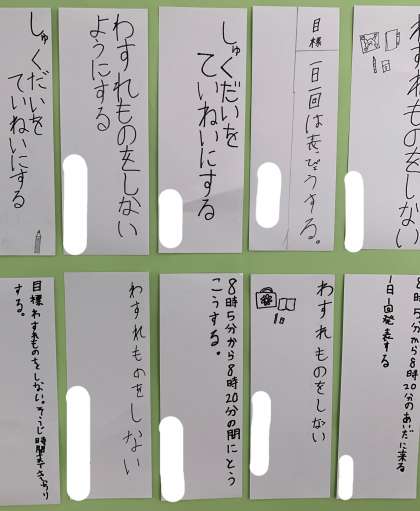 わすれものをしない
目標
一日一回は表ぴょうする。
しゅくだいを
ていねいにする
わすれものをしない
ようにする
しゅくだいを
ていねいにする
8時5分から8時20分のあいだに来る
1日1回発表する
わすれものをしない
8時5分から8時20分の間にとう
こうする。
わすれものをしない
目標わすれものをしない。そうじ時間まで
する。